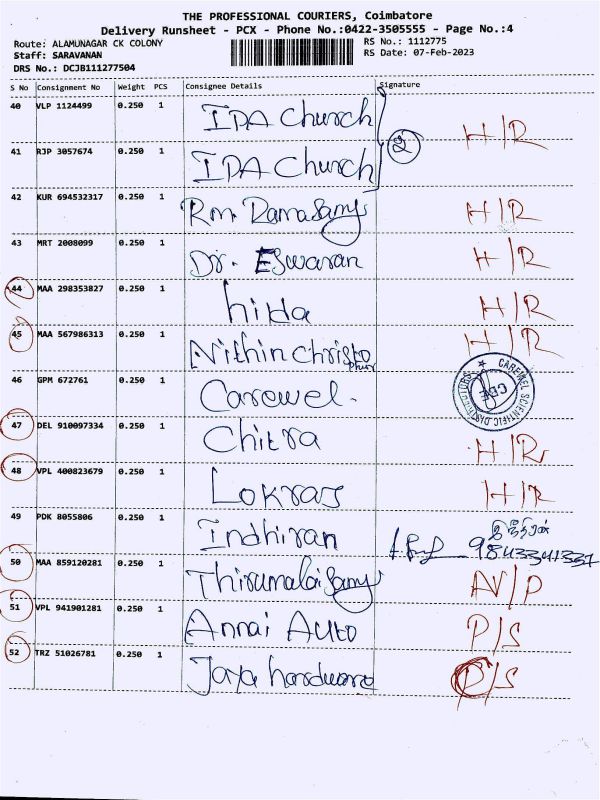 THE PROFESSIONAL COURIERS, Coimbatore
Delivery Runsheet - PCX - Phone No.:0422-3505555 - Page No.:4
Route: ALAMUNAGAR CK COLONY RS No.: 1112775
Staff: SARAVANAN RS Date: 07-Feb-2023
DRS No.: DCJB111277504
S No Consignment No Weight PCS Consignee Details Signature
40 VLP 1124499 0.250 1 IPA Church H/R
41 RJP 3057674 0.250 1 IPA Church 2
42 KUR 694532317 0.250 1 Rm. Ramasamy H/R
43 MRT 2008099 0.250 1 Dr. Eswaran H/R
44 MAA 298353827 0.250 1 hilda H/R
45 MAA 567986313 0.250 1 Nithin Christopher H/R
46 GPM 672761 0.250 1 Carewel. CAREWEL SCIENTIFIC DISTRIBUTORS CBE
47 DEL 910097334 0.250 1 Chitra H/R
48 VPL 400823679 0.250 1 Lokraj H/R
49 PDK 8055806 0.250 1 Indhiran 9843341337
50 MAA 859120281 0.250 1 Thirumalai Samy AV/P
51 VPL 941901281 0.250 1 Annai Auto P/S
52 TRZ 51026781 0.250 1 Jaya hardware P/S